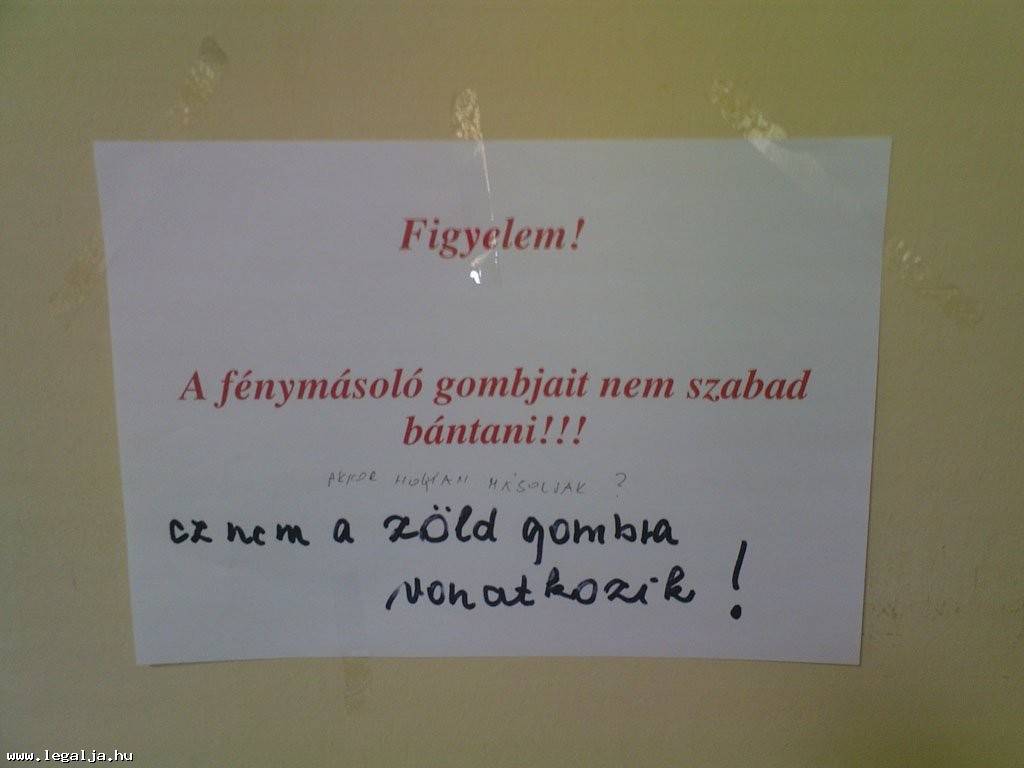 Figyelem!
A fénymásoló gombjait nem szabad
bántani!!!
AKKOR HOGYAN MÁSOLJAK ?
ez nem a zöld gombra
vonatkozik !
www.legalja.hu